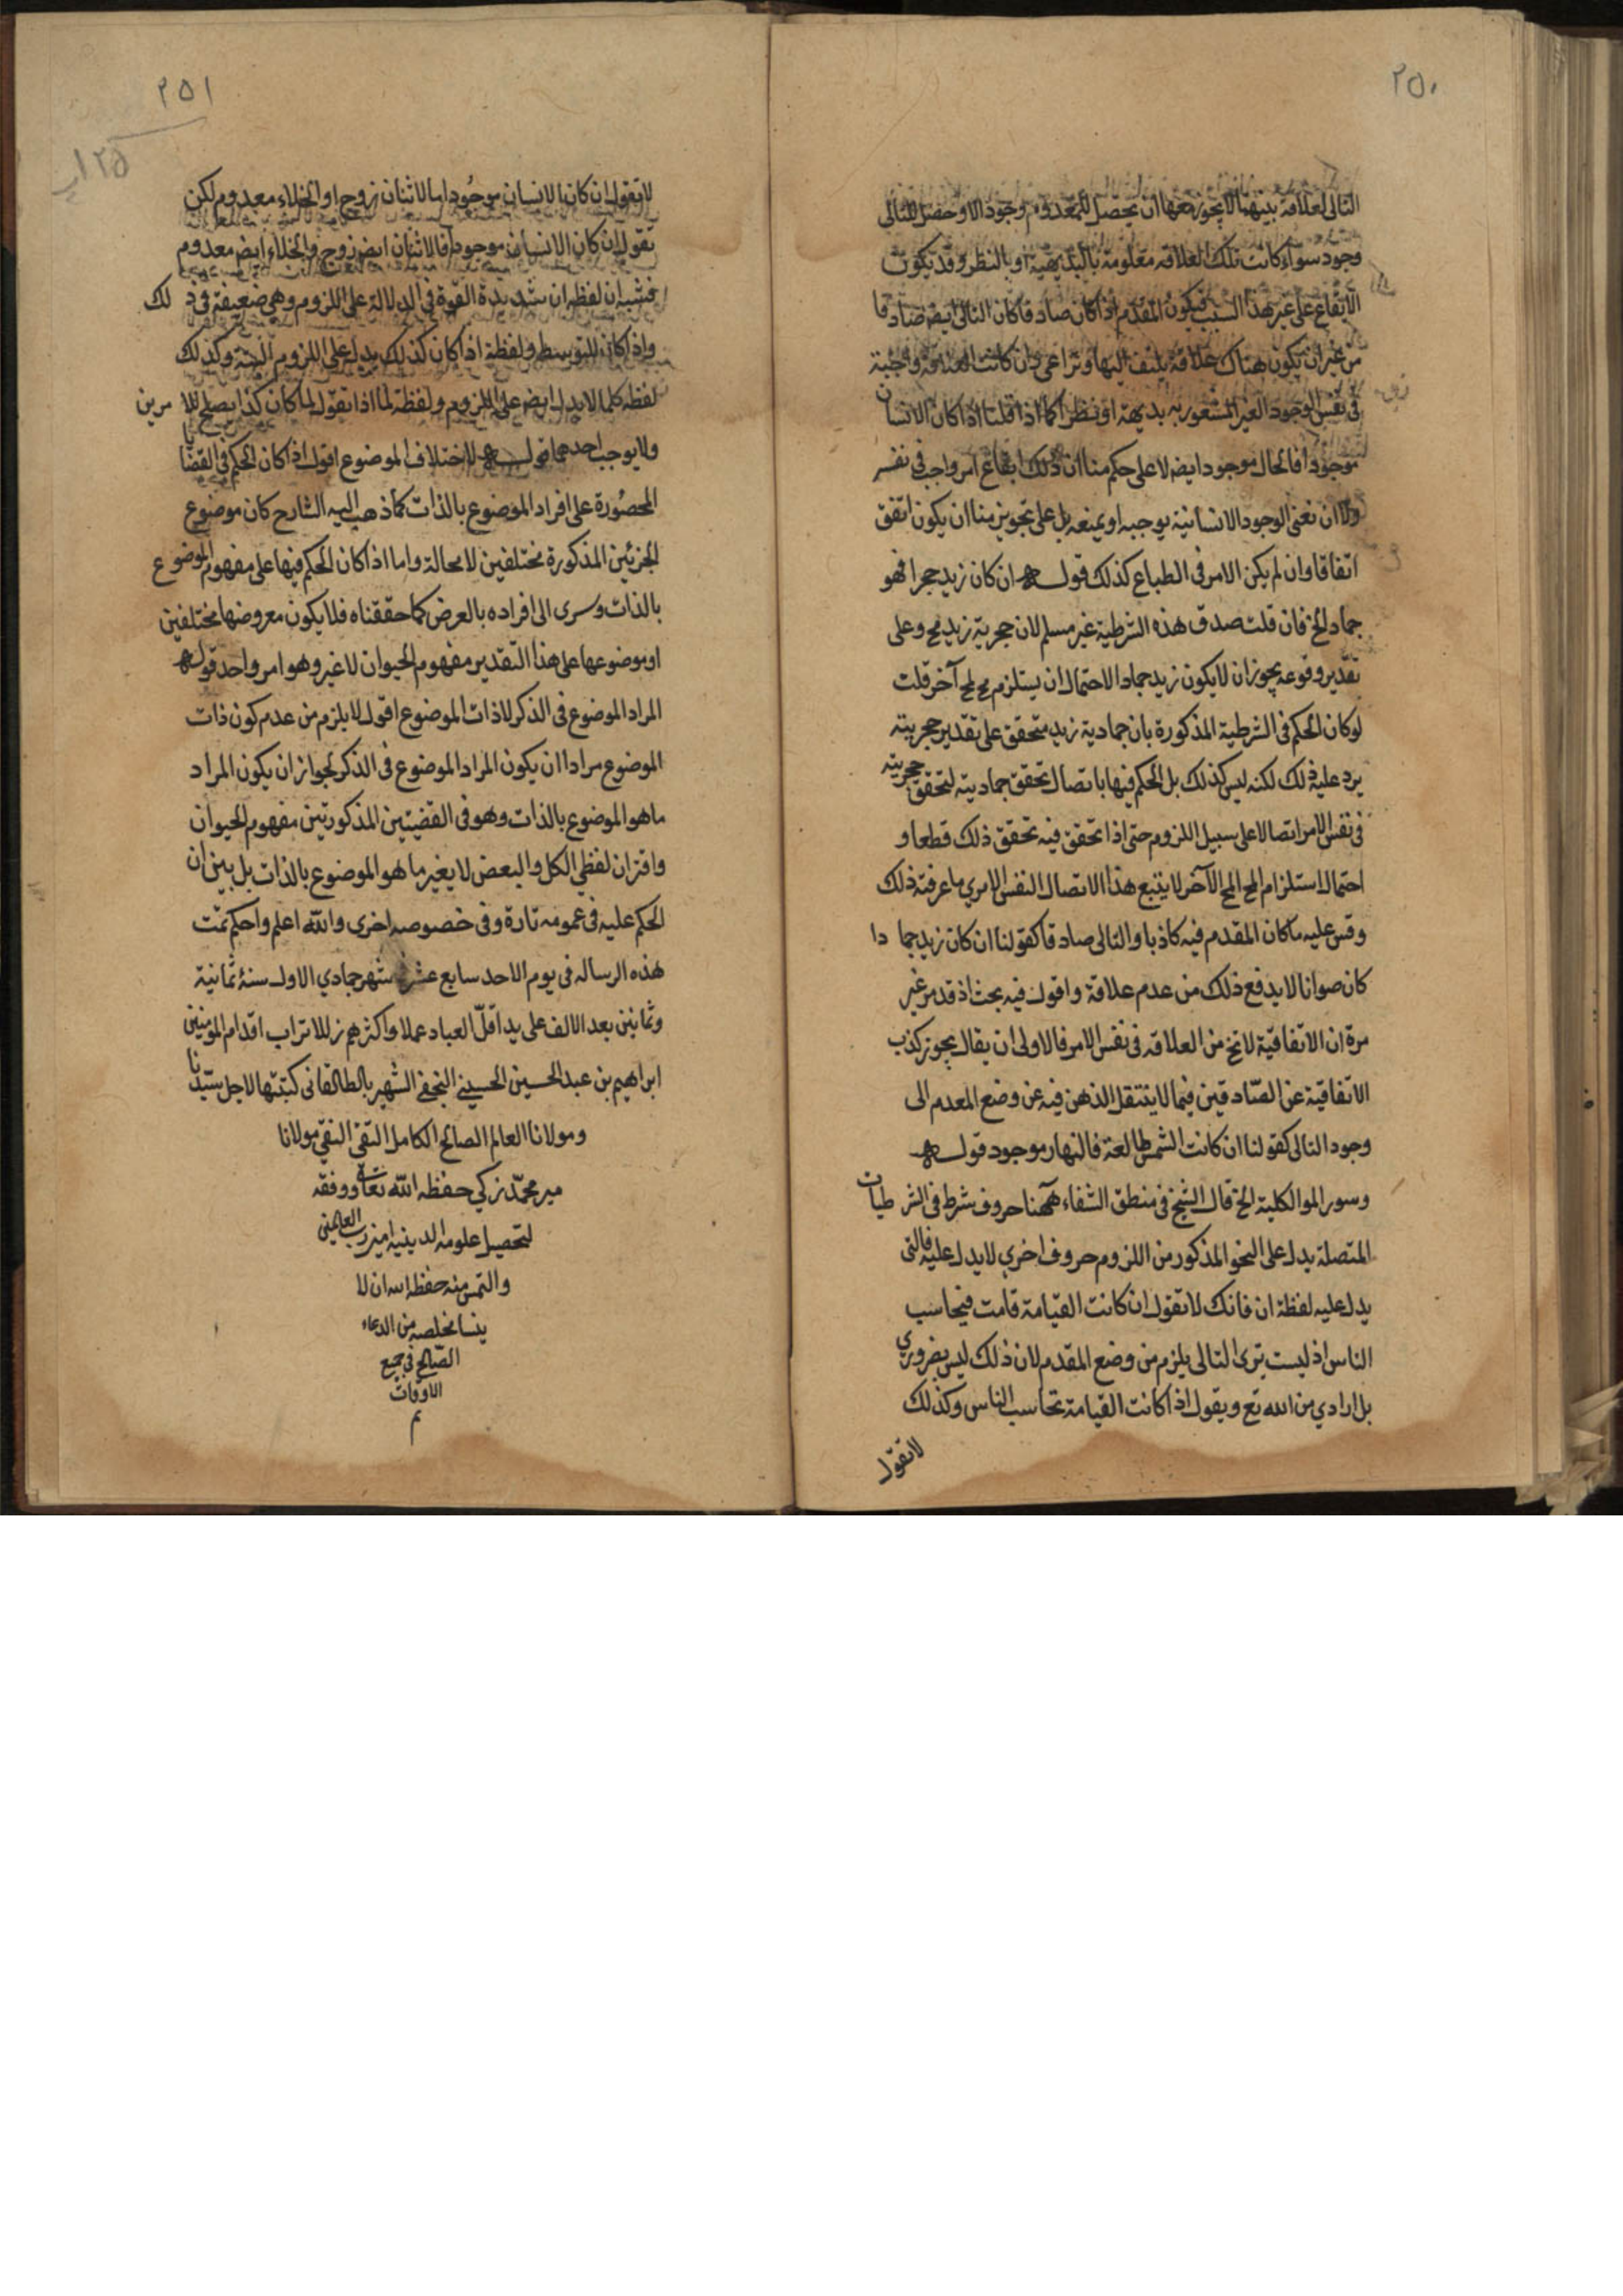 ٢٥٠
التالى لعلاقة بينهما لايجوز معها ان يحصل للمقدم وجود الا وحصل للتالى
وجود سواء كانت تلك العلاقه معلومة بالبديهية او بالنظر وقد يكون
الايقاع على غير هذا السبب فيكون المقدم اذا كان صادقا كان التالى ايضه صادقا
من غير ان يكون هناك علاقة يلتفت اليها وتراعى وان كانت العلاقة واجبة
فى نفس الوجود الغير المشعور به بديهة او نظرا كما اذا قلنا اذا كان الانسان
موجودا فالحال موجود ايضه لا على حكم منا ان ذلك ايقاع امر واجب فى نفسه
ولا ان نعنى الوجود الانسانية يوجبه او يمنعه بل على تجويز منا ان يكون اتفق
اتفاقا وان لم يكن الامر فى الطباع كذلك قوله ان كان زيد حجرا فهو
جماد الخ فان قلت صدق هذه الشرطية غير مسلم لان حجرية زيد مح وعلى
تقدير وقوعه يجوز ان لا يكون زيد جمادا لاحتمال ان يستلزم مح لمح آخر قلت
لو كان الحكم فى الشرطية المذكورة بان جمادية زيد متحقق على تقدير حجريته
يرد عليه ذلك لكنه ليس كذلك بل الحكم فيها باتصال تحقق جماديته لتحقق حجريته
فى نفس الامر اتصالا على سبيل اللزوم حتى اذا تحقق فيه تحقق ذلك قطعا و
احتمال استلزام المح المح الآخر لا يتبع هذا الاتصال النفس الامرى ما عرفته ذلك
وقس عليه ما كان المقدم فيه كاذبا والتالى صادقا كقولنا ان كان زيد جما دا
كان صوانا لا يدفع ذلك من عدم علاقة واقول فيه بحث اذ قد مر غير
مرة ان الاتفاقية لا تخ من العلاقه فى نفس الامر فالاولى ان يقال يجوز كذب
الاتفاقية عن الصادقين فيما لا ينتقل الذهن فيه عن وضع المعدم الى
وجود التالى كقولنا ان كانت الشمس طالعة فالنهار موجود قوله
وسور الموالكلية الخ قال الشيخ فى منطق الشفاء ههنا حروف شرط فى الشر طيات
المتصلة يدل على النحو المذكور من اللزوم حروف اخرى لا يدل عليه فالتى
يدل عليه لفظة ان فانك لا تقول ان كانت القيامة قامت فيحاسب
الناس اذ ليست ترى التالى يلزم من وضع المقدم لان ذلك ليس بضرورى
بل ارادي من الله تع ويقول اذا كانت القيامة تحاسب الناس وكذلك
لا تقول
٢٥١
١٢٥
لا تقول ان كان الانسان موجودا فالاثنان زوج او الخلاء معدوم لكن
تقول ان كان الانسان موجودا فالاثنان ايضه زوج والخلاء ايضه معدوم
فيشبه ان لفظه ان شديدة القوة فى الدلالة على اللزوم وهى ضعيفة فى ذ لك
واذا كان للتوسط ولفظة اذا كان كذلك يدل على اللزوم البتة وكذلك
لفظه كلما لا يدل ايضه على اللزوم ولفظة لما اذا تقول لما كان كذا يصلح للا مرين
ولا يوجب احدهما قوله لاختلاف الموضوع اقول اذا كان الحكم فى القضايا
المحصورة على افراد الموضوع بالذات كما ذهب اليه الشارح كان موضوع
الجزئين المذكورة مختلفين لا محالة واما اذا كان الحكم فيها على مفهوم الموضوع
بالذات وسرى الى افراده بالعرض كما حققناه فلا يكون معروضها مختلفين
او موضوعها على هذا التقدير مفهوم الحيوان لا غير وهو امر واحد قوله
المراد الموضوع فى الذكر لا ذات الموضوع اقول لا يلزم من عدم كون ذات
الموضوع مرادا ان يكون المراد الموضوع فى الذكر لجواز ان يكون المراد
ما هو الموضوع بالذات وهو فى القضيتين المذكورتين مفهوم الحيوان
واقتران لفظى الكل والبعض لا يغير ما هو الموضوع بالذات بل بين ان
الحكم عليه فى عمومه تارة وفى خصوصه اخرى والله اعلم واحكم تمت
هذه الرساله فى يوم الاحد سابع عشر شهر جمادي الاول سنة ثمانية
وثمانين بعد الالف على يد اقلّ العباد عملا واكثرهم زللا تراب اقدام المؤمنين
ابراهيم بن عبد الحسين الحسيني النجفي الشهير بالطالقانى كتبتها لاجل سيدنا
ومولانا العالم الصالح الكامل التقي النقي مولانا
مير محمد زكي حفظه الله تعالى ووفقه
لتحصيل علومه الدينيه امين رب العالمين
والتمس منه حفظه الله ان لا
ينسا مخلصه من الدعاء
الصالح فى جميع
الاوقات
م